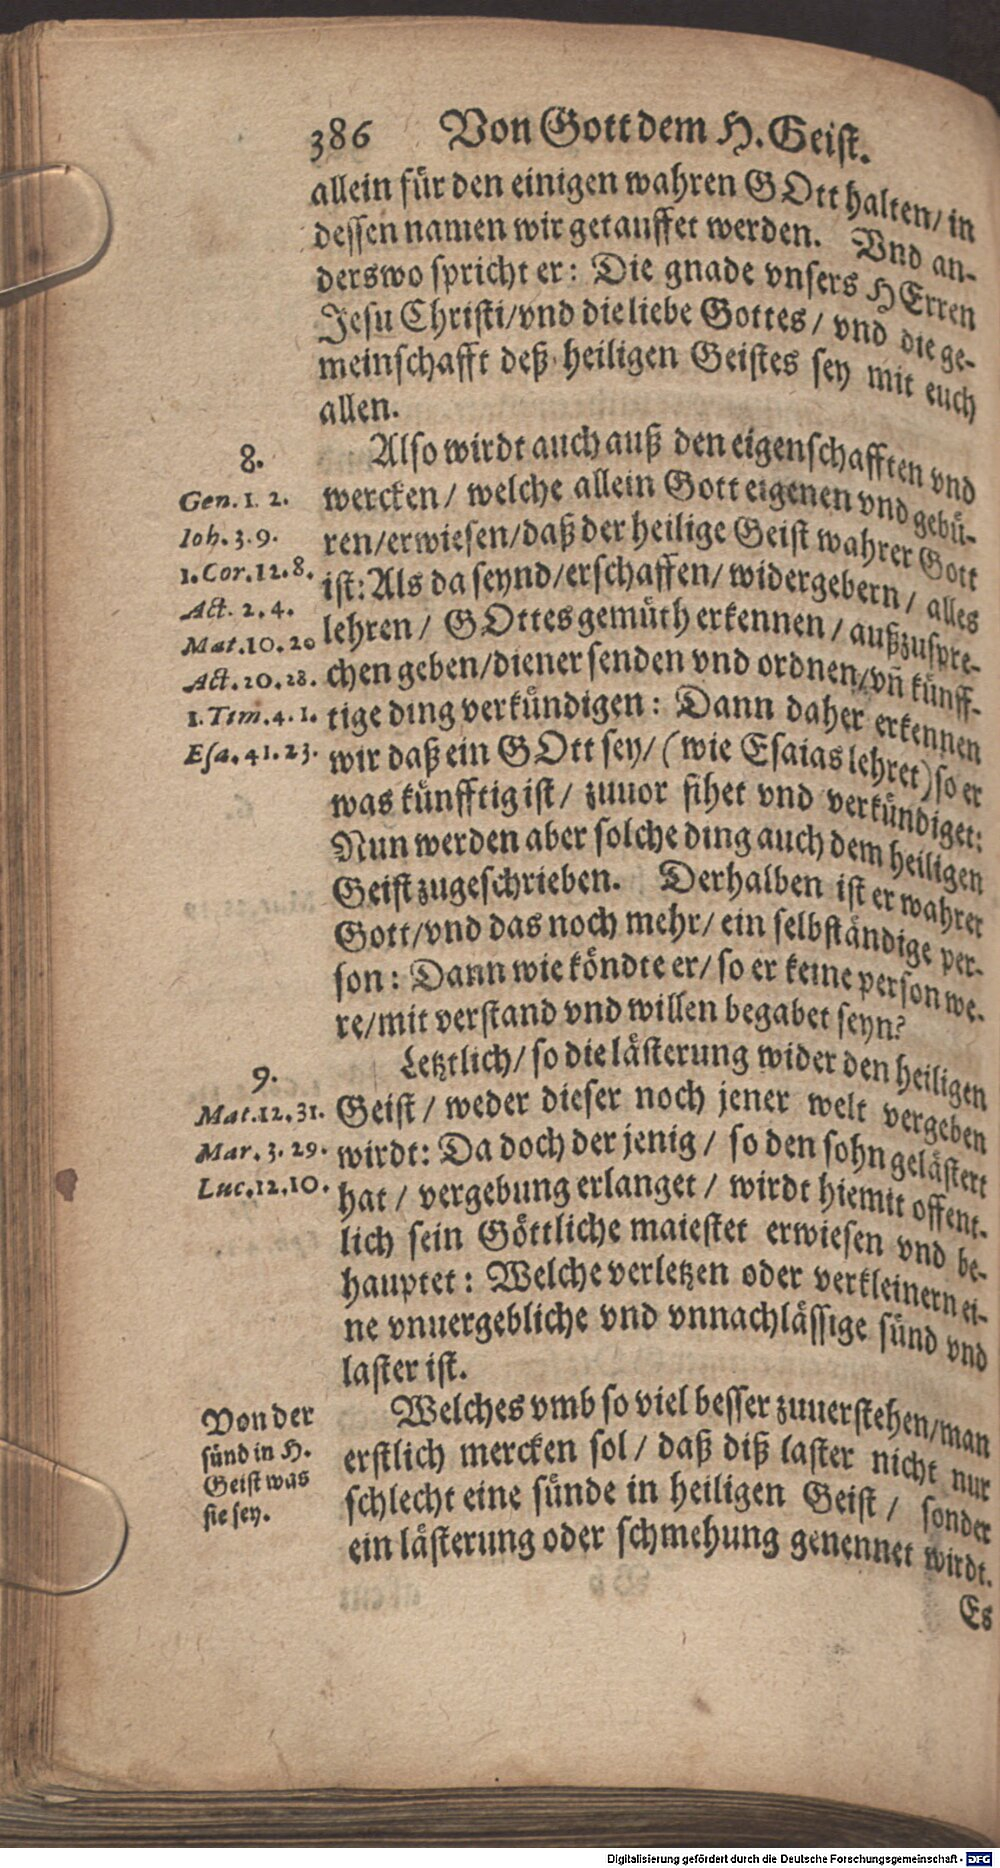 386 Von Gott dem H. Geist.
allein für den einigen wahren GOtt halten/ in
dessen namen wir getauffet werden. Vnd an-
derswo spricht er: Die gnade vnsers HErren
Jesu Christi/vnd die liebe Gottes/ vnd die ge-
meinschafft deß heiligen Geistes sey mit euch
allen.
8.
Gen. 1. 2.
Ioh. 3. 9.
1. Cor. 12. 8.
Act. 2. 4.
Mat. 10. 20
Act. 20. 28.
1. Tim. 4. 1.
Esa. 41. 23.
Also wirdt auch auß den eigenschafften vnd
wercken/ welche allein Gott eigenen vnd gebü-
ren/erwiesen/daß der heilige Geist wahrer Gott
ist: Als da seynd/erschaffen/ widergebern/ alles
lehren/ GOttes gemüth erkennen/ außzuspre-
chen geben/diener senden vnd ordnen/vñ künff-
tige ding verkündigen: Dann daher erkennen
wir daß ein GOtt sey/ (wie Esaias lehret) so er
was künfftig ist/ zuuor sihet vnd verkündiget:
Nun werden aber solche ding auch dem heiligen
Geist zugeschrieben. Derhalben ist er wahrer
Gott/vnd das noch mehr/ ein selbständige per-
son: Dann wie köndte er/ so er keine person we-
re/mit verstand vnd willen begabet seyn?
9.
Mat. 12. 31.
Mar. 3. 29.
Luc. 12. 10.
Letztlich/ so die lästerung wider den heiligen
Geist/ weder dieser noch jener welt vergeben
wirdt: Da doch der jenig/ so den sohn gelästert
hat/ vergebung erlanget/ wirdt hiemit offent-
lich sein Göttliche maiestet erwiesen vnd be-
hauptet: Welche verletzen oder verkleinern ei-
ne vnuergebliche vnd vnnachlässige sünd vnd
laster ist.
Von der
sünd in H.
Geist was
sie sey.
Welches vmb so viel besser zuuerstehen/man
erstlich mercken sol/ daß diß laster nicht nur
schlecht eine sünde in heiligen Geist/ sonder
ein lästerung oder schmehung genennet wirdt.
Es
Digitalisierung gefördert durch die Deutsche Forschungsgemeinschaft - DFG